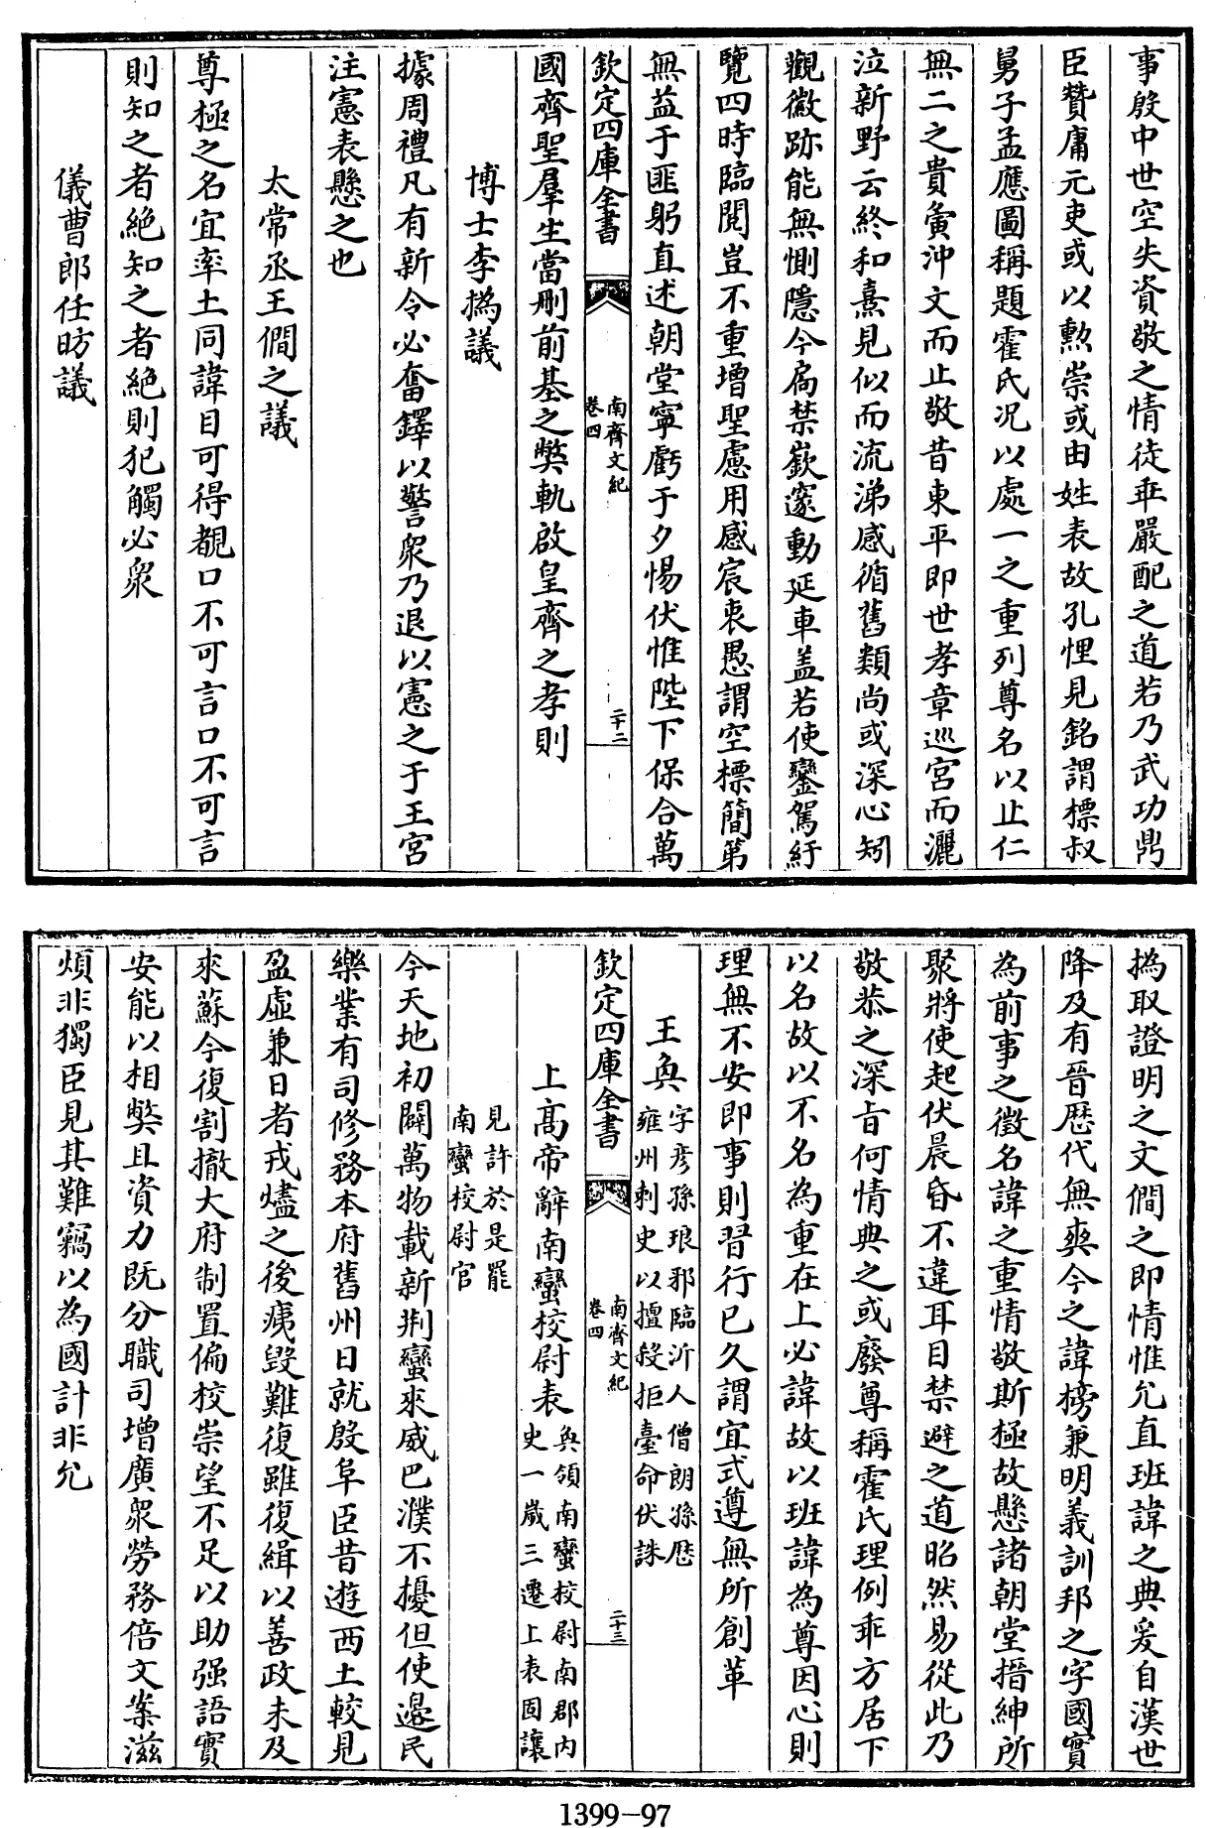 事殷中世空失資敬之情徒乖嚴配之道若乃武功鼎
臣贊庸元吏或以勲崇或由姓表故孔悝見銘謂標叔
舅子孟應圖稱題霍氏况以處一之重列尊名以止仁
無二之貴夤沖文而止敬昔東平即世孝章巡宫而灑
泣新野云終和熹見似而流涕感循舊類尚或深心矧
觀徽跡能無惻隱今扄禁嶔邃動延車盖若使鑾駕紆
覽四時臨閲豈不重增聖慮用感宸衷愚謂空標簡第
無益于匪躬直述朝堂寧虧于夕惕伏惟陛下保合萬
欽定四庫全書
南齊文紀
卷四
二十二
國齊聖羣生當刪前基之弊軌啟皇齊之孝則
博士李撝議
據周禮凡有新令必奮鐸以警衆乃退以憲之于王宫
注憲表懸之也
太常丞王僩之議
尊極之名宜率土同諱目可得覩口不可言口不可言
則知之者絶知之者絶則犯觸必衆
儀曹郎任昉議
撝取證明之文僩之即情惟允直班諱之典爰自漢世
降及有晉歴代無爽今之諱榜兼明義訓邦之字國實
為前事之徵名諱之重情敬斯極故懸諸朝堂搢紳所
聚將使起伏晨昏不違耳目禁避之道昭然易從此乃
敬恭之深㫖何情典之或廢尊稱霍氏理例乖方居下
以名故以不名為重在上必諱故以班諱為尊因心則
理無不安即事則習行已久謂宜式遵無所創革
王奐
字彦孫琅邪臨沂人僧朗孫歴
雍州刺史以擅殺拒臺命伏誅
欽定四庫全書
南齊文紀
卷四
二十三
上高帝辭南蠻校尉表
奐領南蠻校尉南郡内
史一嵗三遷上表固讓
見許於是罷
南蠻校尉官
今天地初闢萬物載新荆蠻來威巴濮不擾但使邊民
樂業有司修務本府舊州日就殷阜臣昔遊西土較見
盈虛兼日者戎燼之後痍毀難復雖復緝以善政未及
來蘇今復割撤大府制置偏校崇望不足以助强語實
安能以相弊且資力既分職司增廣衆勞務倍文案滋
煩非獨臣見其難竊以為國計非允
1399-97